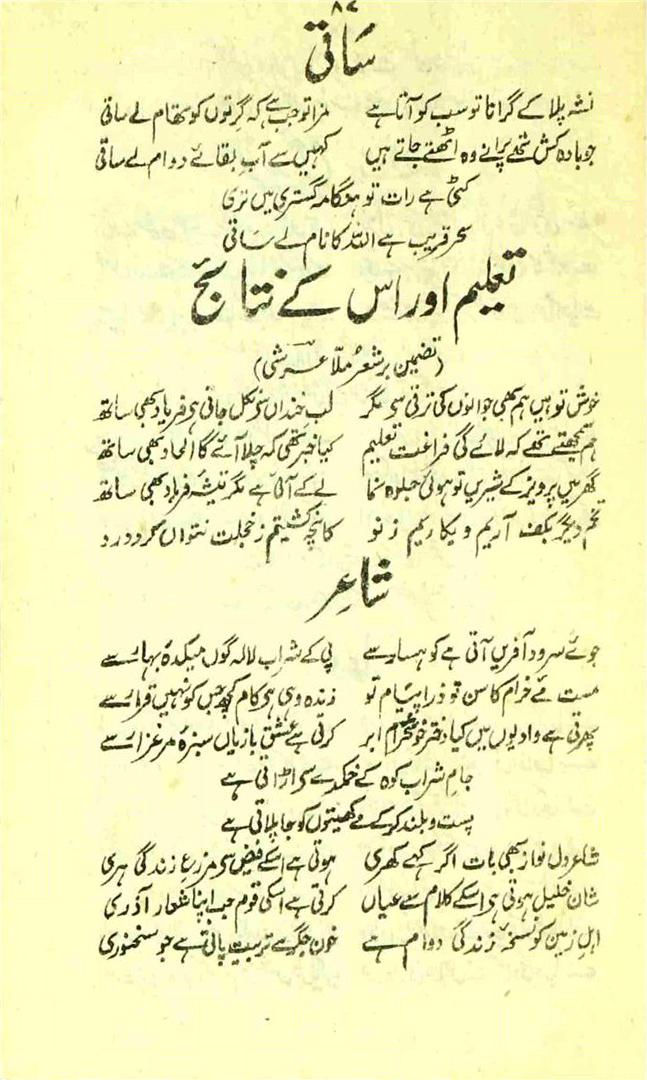 ۸۷
ساقی
نشہ پلا کے گرانا تو سب کو آتا ہے مزا تو جب ہے کہ گرتوں کو تھام لے ساقی
جو بادہ کش تھے پرانے وہ اٹھتے جاتے ہیں کہیں سے آبِ بقائے دوام لے ساقی
کٹی ہے رات تو ہنگامہ گستری میں تری
سحر قریب ہے اللہ کا نام لے ساقی
تعلیم اور اس کے نتائج
(تضمین بر شعر ملّا عرشی)
خوش تو ہیں ہم بھی جوانوں کی ترقی سے مگر لبِ خنداں سے نکل جاتی ہے فریاد بھی ساتھ
ہم سمجھتے تھے کہ لائے گی فراغت تعلیم کیا خبر تھی کہ چلا آئے گا الحاد بھی ساتھ
گھر میں پرویز کے شیریں تو ہوئی جلوہ نما لے کے آئی ہے مگر تیشۂ فرہاد بھی ساتھ
تخم دیگر بکف آریم و بکاریم ز نو کانچہ کشتیم ز خجلت نتواں کرد درو
شاعر
جوئے سرود آفریں آتی ہے کوہسار سے پی کے شراب لالہ گوں میکدۂ بہار سے
مستِ مے خرام کا سن تو ذرا پیام تو زندہ وہی ہے کام کچھ جس کو نہیں قرار سے
پھرتی ہے وادیوں میں کیا دخترِ خوش خرام ابر کرتی ہے عشق بازیاں سبزۂ مرغزار سے
جام شراب کوہ کے خمکدے سے اڑاتی ہے
پست و بلند کر کے طے کھیتوں کو جا پلاتی ہے
شاعرِ دل نواز بھی بات اگر کہے کھری ہوتی ہے اسکے فیض سے مزرعِ زندگی ہری
شانِ خلیل ہوتی ہے اسکے کلام سے عیاں کرتی ہے اسکی قوم جب اپنا شعار آذری
اہلِ زمیں کو نسخۂ زندگیٔ دوام ہے خونِ جگر سے تربیت پاتی ہے جو سخنوری